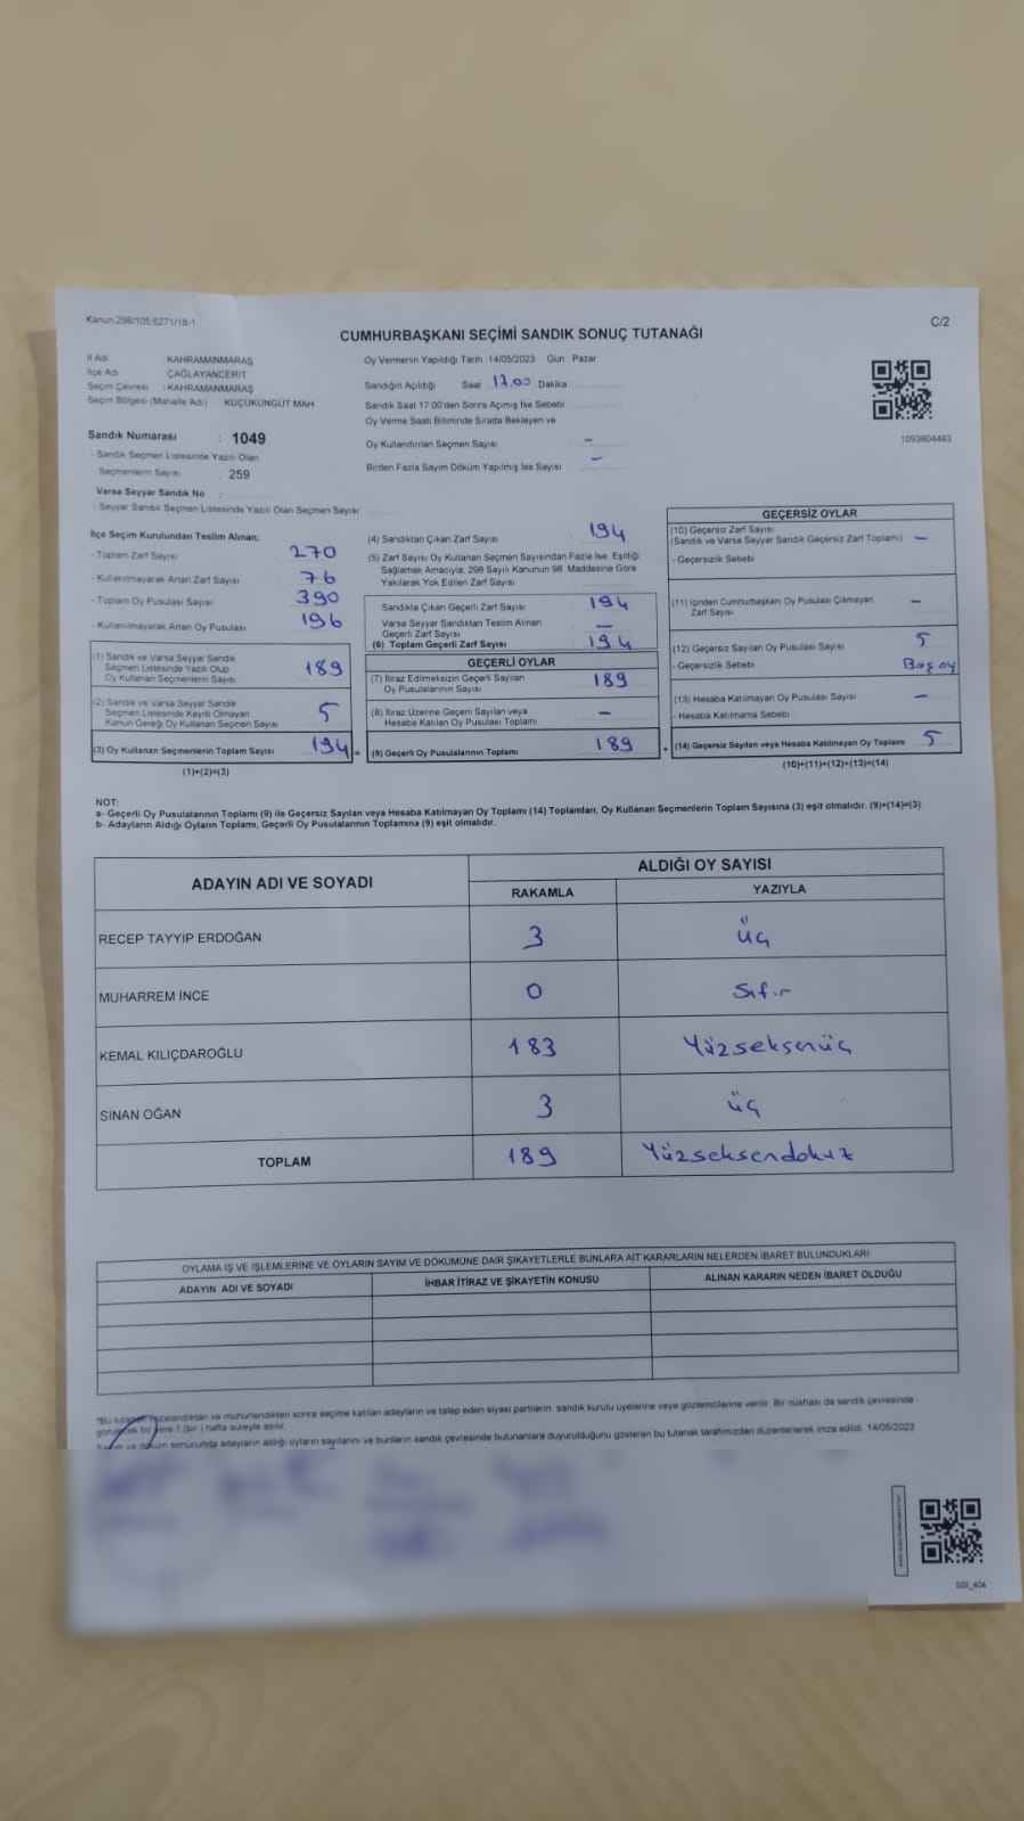 Kanun:298/105;6271/18-1
C/2
CUMHURBAŞKANI SEÇİMİ SANDIK SONUÇ TUTANAĞI
İl Adı KAHRAMANMARAŞ
İlçe Adı ÇAĞLAYANCERİT
Seçim Çevresi : KAHRAMANMARAŞ
Seçim Bölgesi (Mahalle Adı) KÜÇÜKÜNGÜT MAH
Sandık Numarası : 1049
- Sandık Seçmen Listesinde Yazılı Olan
Seçmenlerin Sayısı 259
Varsa Seyyar Sandık No
- Seyyar Sandık Seçmen Listesinde Yazılı Olan Seçmen Sayısı
Oy Vermenin Yapıldığı Tarih 14/05/2023 Gün Pazar
Sandığın Açıldığı Saat 17.00 Dakika
Sandık Saat 17:00'den Sonra Açılmış İse Sebebi
Oy Verme Saati Bitiminde Sırada Bekleyen ve
Oy Kullandırılan Seçmen Sayısı –
Birden Fazla Sayım Döküm Yapılmış İse Sayısı –
1093804463
İlçe Seçim Kurulundan Teslim Alınan;
- Toplam Zarf Sayısı 270
- Kullanılmayarak Artan Zarf Sayısı 76
- Toplam Oy Pusulası Sayısı 390
- Kullanılmayarak Artan Oy Pusulası 196
(1) Sandık ve Varsa Seyyar Sandık
Seçmen Listesinde Yazılı Olup
Oy Kullanan Seçmenlerin Sayısı 189
(2) Sandık ve Varsa Seyyar Sandık
Seçmen Listesinde Kayıtlı Olmayan
Kanun Gereği Oy Kullanan Seçmen Sayısı 5
(3) Oy Kullanan Seçmenlerin Toplam Sayısı 194
(1)+(2)=(3)
(4) Sandıktan Çıkan Zarf Sayısı 194
(5) Zarf Sayısı Oy Kullanan Seçmen Sayısından Fazla İse, Eşitliği
Sağlamak Amacıyla, 298 Sayılı Kanunun 98. Maddesine Göre
Yakılarak Yok Edilen Zarf Sayısı
Sandıkta Çıkan Geçerli Zarf Sayısı 194
Varsa Seyyar Sandıktan Teslim Alınan
Geçerli Zarf Sayısı –
(6) Toplam Geçerli Zarf Sayısı 194
GEÇERLİ OYLAR
(7) İtiraz Edilmeksizin Geçerli Sayılan
Oy Pusulalarının Sayısı 189
(8) İtiraz Üzerine Geçerli Sayılan veya
Hesaba Katılan Oy Pusulası Toplamı –
(9) Geçerli Oy Pusulalarının Toplamı 189
GEÇERSİZ OYLAR
(10) Geçersiz Zarf Sayısı
(Sandık ve Varsa Seyyar Sandık Geçersiz Zarf Toplamı) –
- Geçersizlik Sebebi
(11) İçinden Cumhurbaşkanı Oy Pusulası Çıkmayan
Zarf Sayısı –
(12) Geçersiz Sayılan Oy Pusulası Sayısı 5
- Geçersizlik Sebebi Boş oy
(13) Hesaba Katılmayan Oy Pusulası Sayısı –
- Hesaba Katılmama Sebebi
(14) Geçersiz Sayılan veya Hesaba Katılmayan Oy Toplamı 5
(10)+(11)+(12)+(13)=(14)
NOT:
a- Geçerli Oy Pusulalarının Toplamı (9) ile Geçersiz Sayılan veya Hesaba Katılmayan Oy Toplamı (14) Toplamları, Oy Kullanan Seçmenlerin Toplam Sayısına (3) eşit olmalıdır. (9)+(14)=(3)
b- Adayların Aldığı Oyların Toplamı, Geçerli Oy Pusulalarının Toplamına (9) eşit olmalıdır.
ADAYIN ADI VE SOYADI ALDIĞI OY SAYISI
RAKAMLA YAZIYLA
RECEP TAYYİP ERDOĞAN 3 üç
MUHARREM İNCE 0 Sıfır
KEMAL KILIÇDAROĞLU 183 Yüzseksenüç
SİNAN OĞAN 3 üç
TOPLAM 189 Yüzseksendokuz
OYLAMA İŞ VE İŞLEMLERİNE VE OYLARIN SAYIM VE DÖKÜMÜNE DAİR ŞİKAYETLERLE BUNLARA AİT KARARLARIN NELERDEN İBARET BULUNDUKLARI
ADAYIN ADI VE SOYADI İHBAR İTİRAZ VE ŞİKAYETİN KONUSU ALINAN KARARIN NEDEN İBARET OLDUĞU
ve mühürlendikten sonra seçime katılan adayların ve talep eden siyasi partilerin, sandık kurulu üyelerine veya gözlemcilerine verilir. Bir nüshası da sandık çevresinde
bir yere 1 (bir) hafta süreyle asılır.
sonucunda adayların aldığı oyların sayılarını ve bunların sandık çevresinde bulunanlara duyurulduğunu gösteren bu tutanak tarafımızdan düzenlenerek imza edildi. 14/05/2023